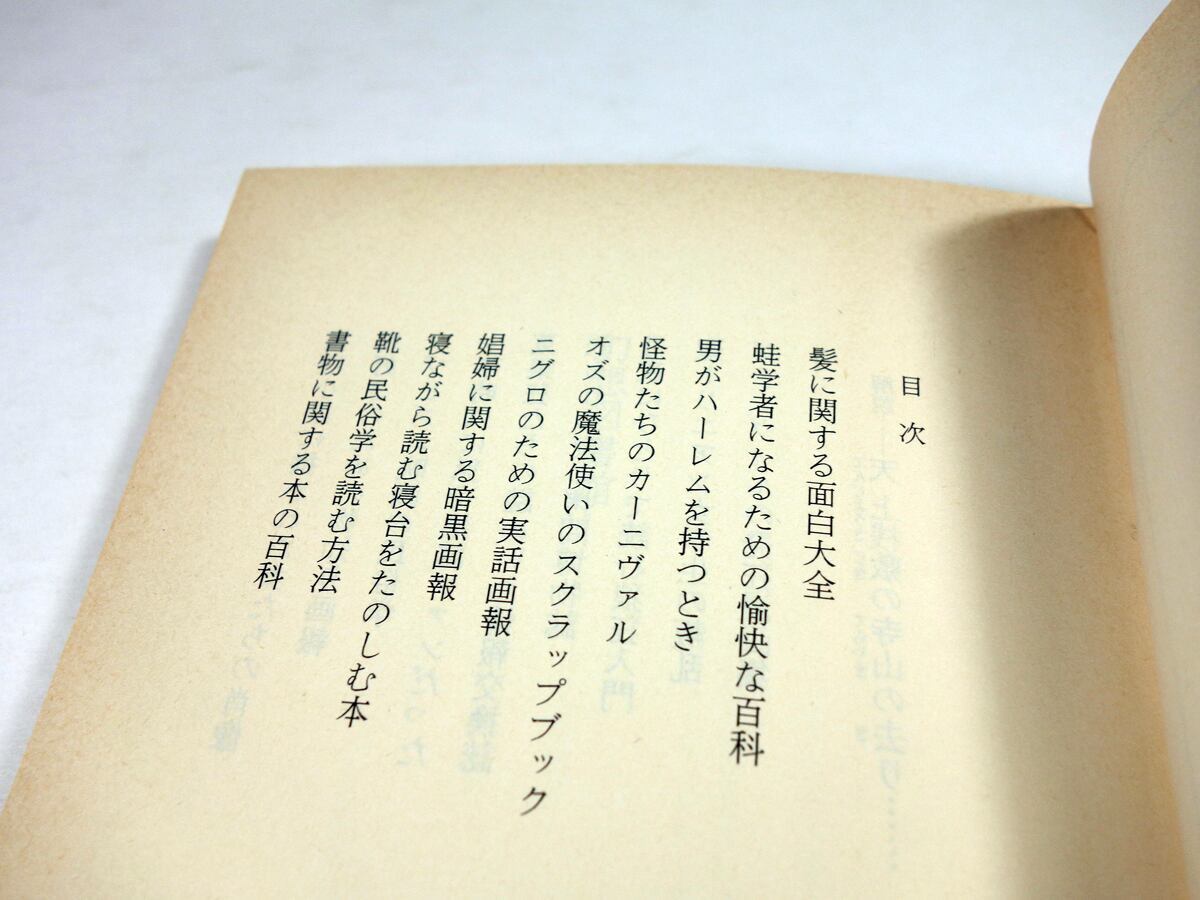 目次
髪に関する面白大全
蛙学者になるための愉快な百科
男がハーレムを持つとき
怪物たちのカーニヴァル
オズの魔法使いのスクラップブック
ニグロのための実話画報
娼婦に関する暗黒画報
寝ながら読む寝台をたのしむ本
靴の民俗学を読む方法
書物に関する本の百科